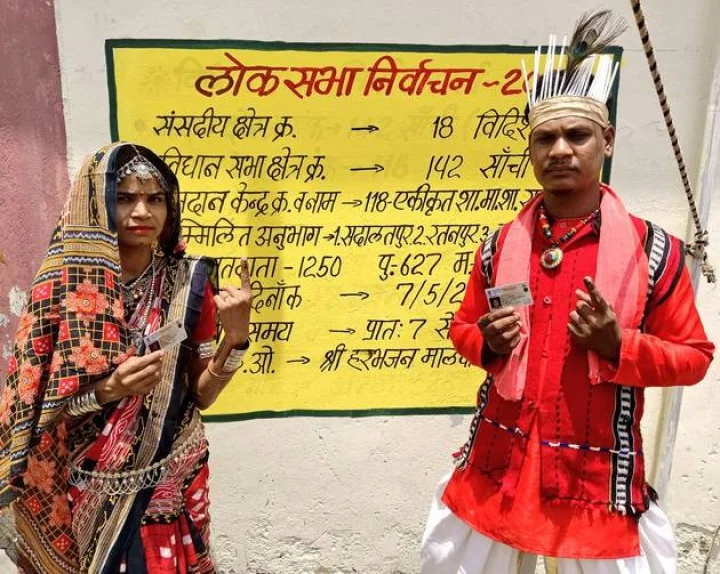 लोक सभा निर्वाचन - 2
संसदीय क्षेत्र क्र. → 18 विदि
विधान सभा क्षेत्र क्र. → 142 साँची
दान केन्द्र क्र. व नाम → 118-एकीकृत शा.मा.शा.
म्मिलित अनुभाग → 1. सदालतपुर 2. रतनपुर 3.
दाता - 1250 पु: 627 म
दिनाँक → 7/5/2
समय → प्रातः 7 से
ओ. → श्री हरभजन माल